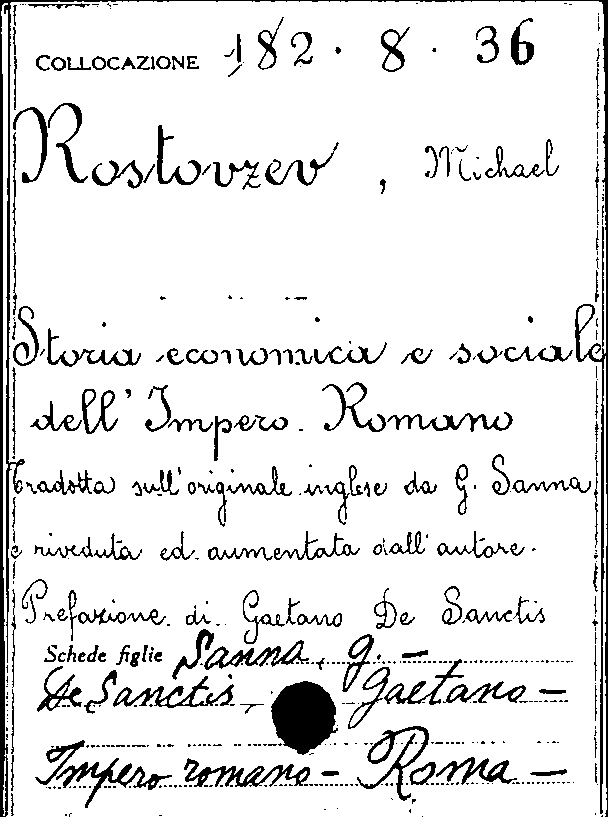 COLLOCAZIONE 182 · 8 · 36
Rostovzev, Michael
Storia economica e sociale
dell'Impero Romano
Tradotta sull'originale inglese da G. Sanna
e riveduta ed aumentata dall'autore.
Prefazione di Gaetano De Sanctis
Schede figlie Sanna, G. —
De Sanctis, Gaetano —
Impero romano — Roma —